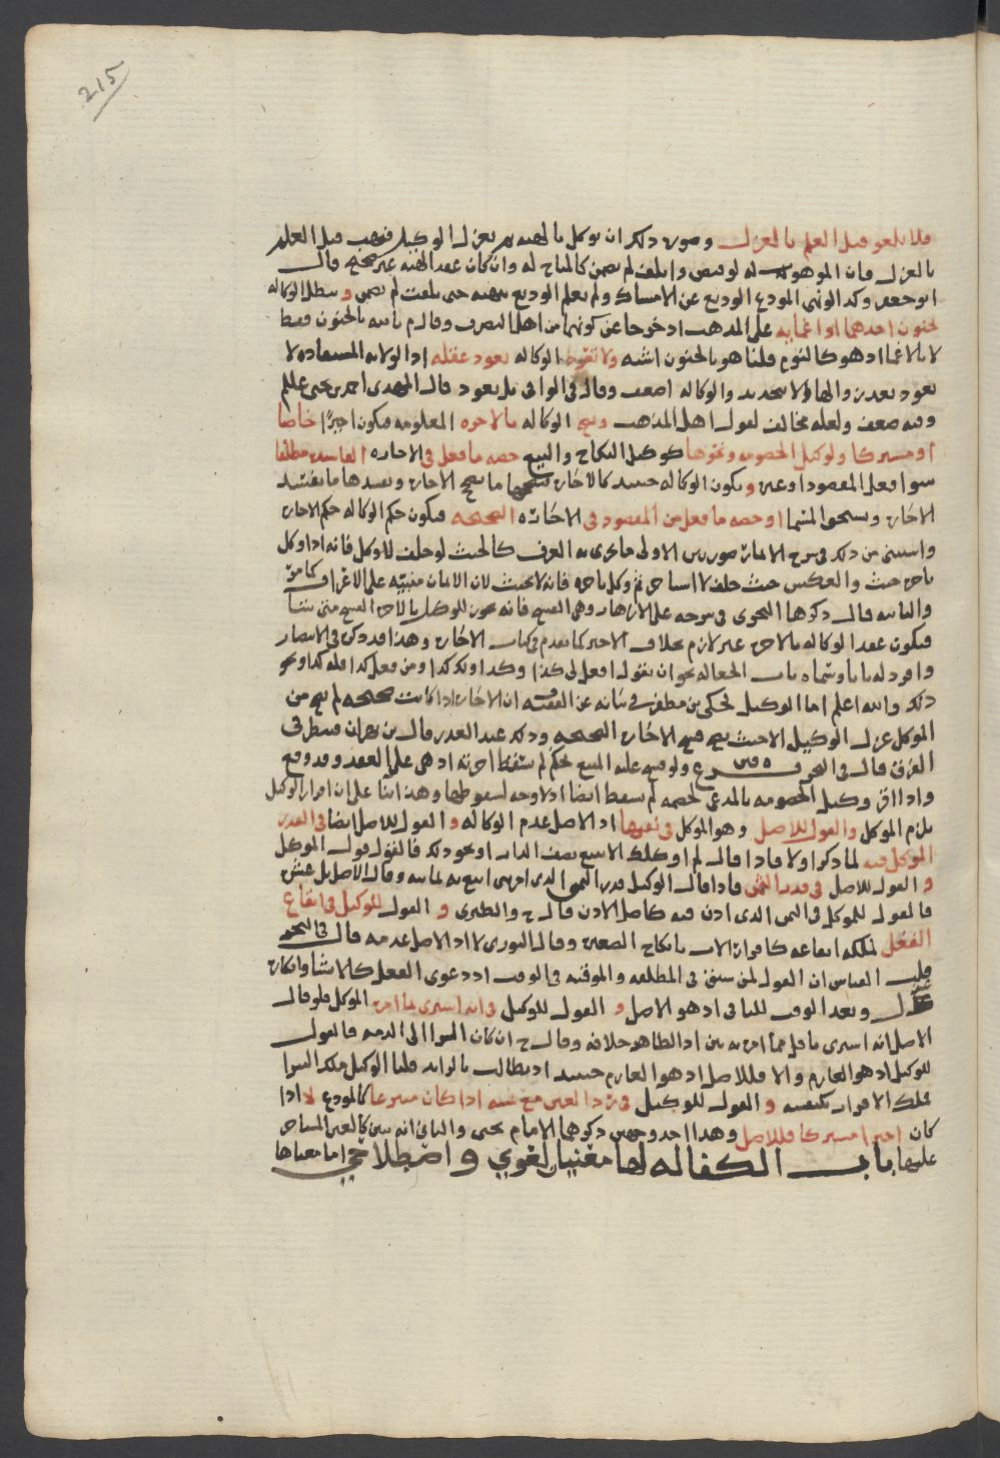 215
فلا يلغو قبل العلم بالعزل وصورة ذلك ان يوكل بالهبة ثم يعزل الوكيل فيهب قبل العلم
بالعزل فان الموهوب له لو قبض واتلف لم يضمن كالمباح له وان كان عقد الهبة غير صحيح قال
ابو جعفر وكذا لو نهى المودع الوديع عن الامساك ولم يعلم الوديع بنهيه حتى تلفت لم يضمن وتبطل الوكاله
بجنون احدهما او اغمايه على المذهب اذ خرجا عن كونهما من اهل التصرف وقال م بالله بالجنون فقط
لا بالاغما اذ هو كالنوم قلنا هو بالجنون اشبه ولا تعود الوكاله بعود عقله اذ الولايه المستفاده لا
تعود بعد والها الا بتجديد والوكاله اضعف وقال في الوافي بل يعود قال المهدي احمد بن يحيى عللم
وفيه ضعف ولعله مخالف لقول اهل المذهب وتصح الوكاله بالاجره المعلومه فيكون اجيرًا خاصا
او مشتركا ولوكيل الخصومه ونحوها كوكيل النكاح والبيع حصه ما فعل في الاجاره الفاسده مطلقا
سوا فعل المقصود او غيره وتكون الوكاله حينئذ كالاجاره يصححها ما يصحح الاجاره ويفسدها ما يفسد
الاجاره ويستحق المسما او حصه ما فعل من المقصود في الاجاره الصحيحه فيكون حكم الوكاله حكم الاجاره
واستثنى من ذلك في شرح الاثمار صورتين الاولى ما يجري به العرف كالحنث لو حلف لا وكل فانه اذا وكل
باجره حنث والعكس حيث حلف لا استاجر ثم وكل باجره فانه لا يحنث لان الايمان مبنيه على الاعراف كما مر
والثانيه قال ذكرها النجري في شرحه على الازهار وهي الفسخ فانه يجوز للوكيل بالاجره الفسخ متى شا
فيكون عقد الوكاله بالاجره غير لازم بخلاف الاجير كما تقدم في كتاب الاجاره وهذا قد ذكره في الانتصار
وافرد له بابا وسماه باب الجعاله نحو ان يقول افعل لي كذا وكذا ولك كذا او من فعل كذا فله كذا ونحو
ذلك والله اعلم اما الوكيل فحكى بن مظفر في بيانه عن الفقيه ان الاجاره اذا كانت صحيحه لم يصح من
الموكل عزل الوكيل الا حيث يصح فسخ الاجاره الصحيحه وذلك عند العذر قال بن بهران فينظر في
الفرق قال في البحر فرع ولو فسخ عليه البيع بحكم لم تسقط اجرته اذ هي على العقد وقد وقع
واذا اقر وكيل الخصومه بالمدعى لخصمه لم تسقط ايضا اذ لا وجه لسقوطها وهذا بنا على ان اقرار الوكيل
يلزم الموكل والقول للاصل وهو الموكل في نفيها اذ الاصل عدم الوكاله والقول للاصل ايضا في القدر
الموكل فيه لما ذكر اولا فاذا قال لم اوكلك الا ببيع نصف الدار او نحو ذلك فالقول قول الموكل
والقول للاصل في قدر الثمن فاذا قال الوكيل قدر الثمن الذي امرتني ابيع به ثمانيه وقال الاصل بل عشره
فالقول للموكل في الثمن الذي اذن فيه كاصل الاذن قال ح والطبري والقول للوكيل في ايقاع
الفعل لتملكه ايقاعه كاقرار الاب بانكاح الصغيره وقال الثوري لا اذ الاصل عدمه قال في البحر
قلت القياس ان القول لمن سبق في المطلقه والموقته في الوقت اذ دعوى الفعل كالانشا وانكاره
عزل وبعد الوقت للنافي اذ هو الاصل والقول للوكيل في انه اشترى بما امره الموكل فلو قال
الاصل انه اشترى باقل مما امره به بين اذ الظاهر خلافه وقال ح ان كان الشرا الى الذمه فالقول
للوكيل اذ هو الغارم والا فللاصل اذ هو الغارم حينئذ اذ يطالب بالزايد قلنا الوكيل ملك الشرا
فملك الاقرار بكيفيته والقول للوكيل في رد العين مع يمينه اذا كان متبرعا كالمودع لا اذا
كان اجيرا مشتركا فللاصل وهذا احد وجهين ذكرهما الامام يحيى والثاني انه يبين كالعين المستاجر
عليها باب الكفاله لها معنيان لغوي واصطلاحي اما معناها